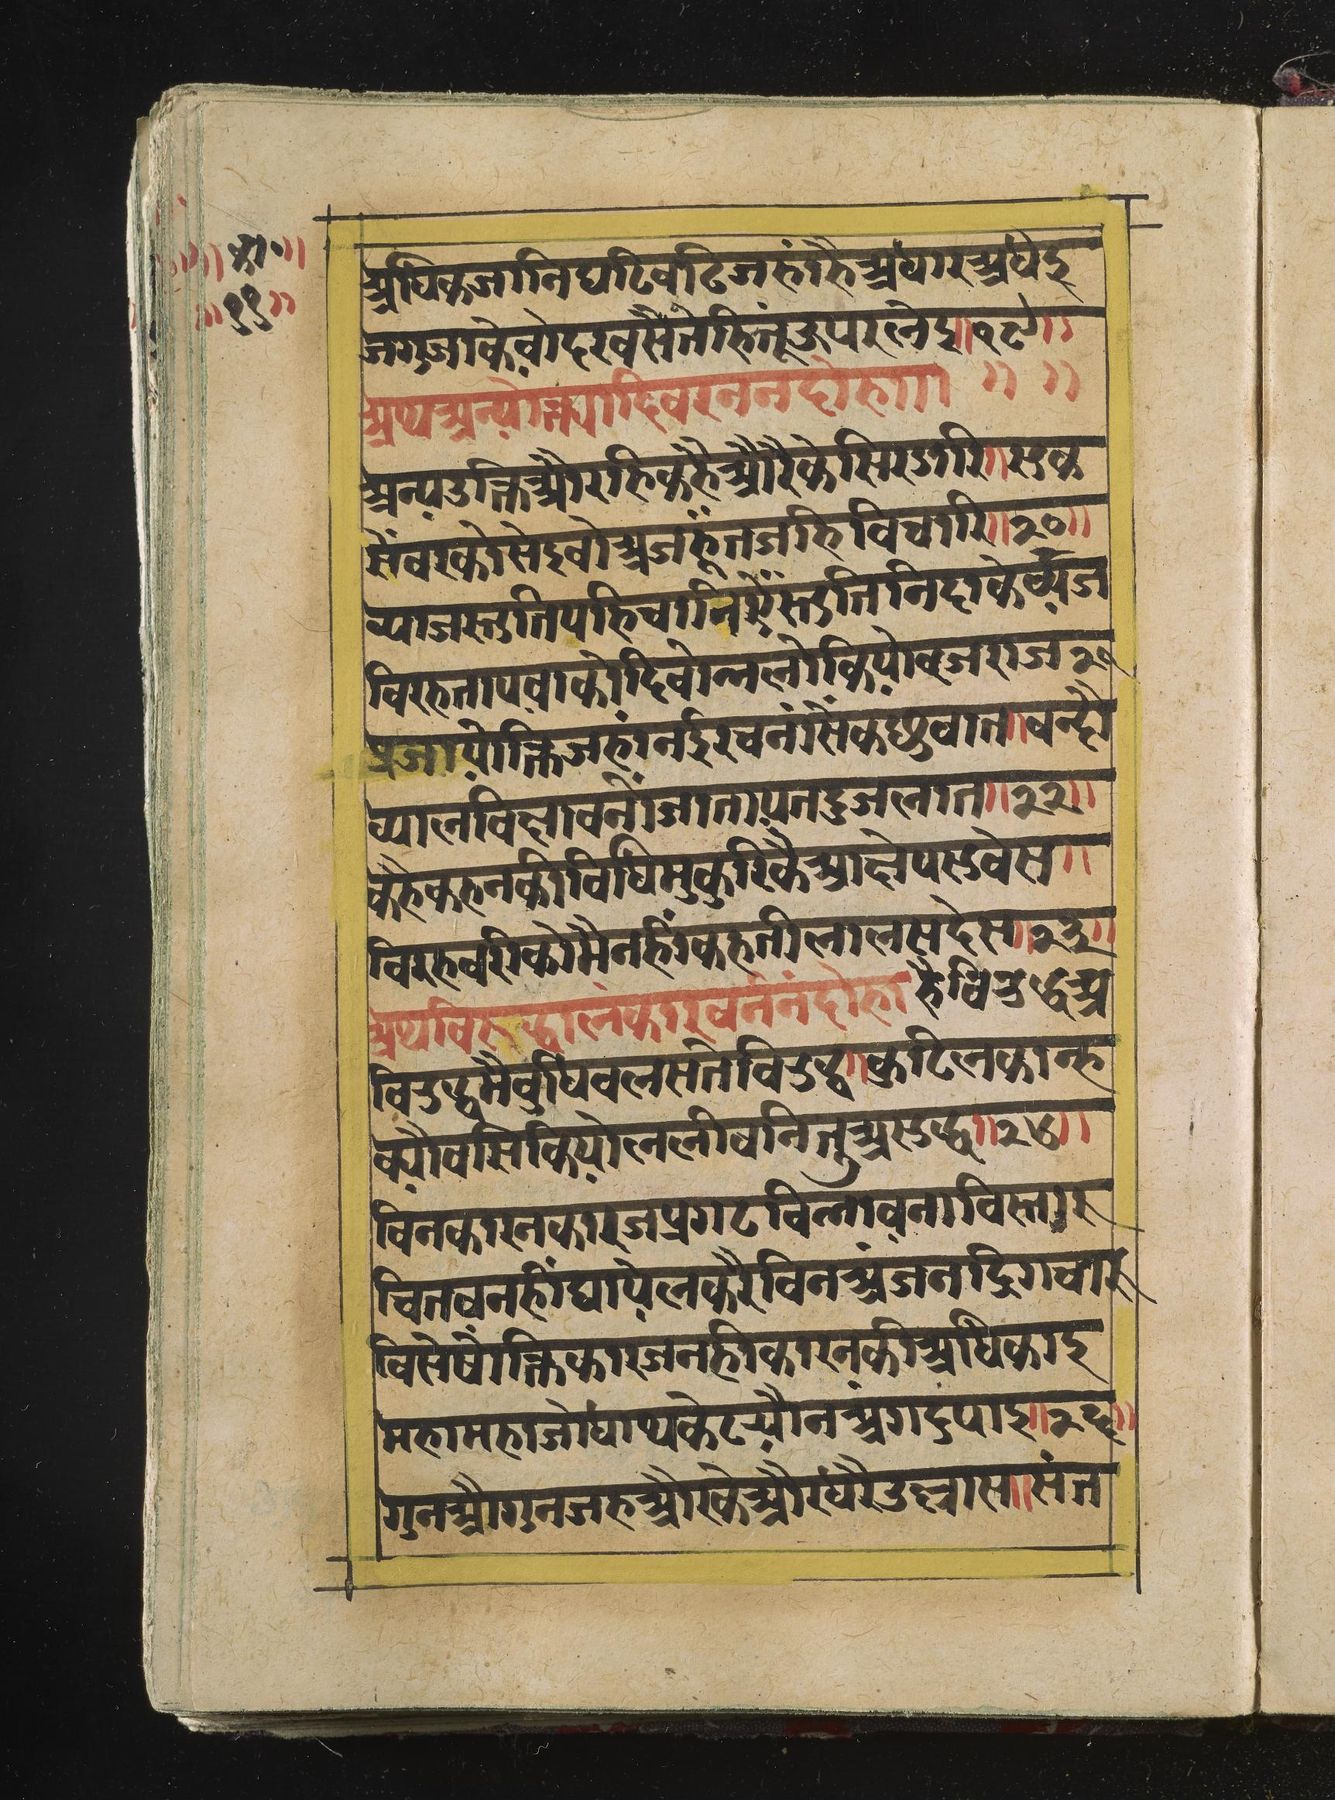 ॥ का॰ ॥
॥ ११ ॥
अधिकजानिघटिवटिजहांहैअधारअधेइ
जगुजाकेवोदरवसैतेहितूंऊपरलेइ॥१९॥
अथअन्योक्त्यादिवरननदोहा॥ ॥ ॥
अन्यउक्तिऔरहिकहैऔरैकेसिरडारि॥सुक
सेंवरकोसेइवोअजहूंतजहिविचारि॥२०॥
व्याजस्तुतिपहिचानिऐंस्तुतिनिंदाकेव्यंज
विरहतापवाकोदिवोभलोकियोव्रजराज२१
प्रजायोक्तिजहांनईरचनांसैंकछुवात॥वन्दौ
व्यालविछावनौंजातापतदुजलात॥२२॥
कहैकहनकीविधिमुकुरिकैआछेपसुवेस॥
विरहवरीकोमैनहींकहतीलालसदेस॥२३॥
अथविरुद्धालंकारवर्ननंदोहा हैविरुद्धअ
विरुद्धमैवुधिवलसतविरुद्ध॥कुटिलकान्ह
क्यौवसिकियोललीवनितुअसुद्ध॥२४॥
विनकारनकारजप्रगटविभावनाविस्तारु
चितवनहींघायेलकरैविनअंजनद्रिगचारु
विसेषोक्तिकारजनहीकारनकीअधिकाइ
महामहाजोधाथकेटर्यौनअंगदपाइ॥२५॥
गुनऔगुनजहऔरकेऔरधरैउल्लास॥संत